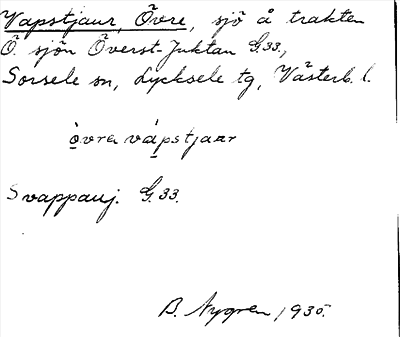 Vapstjaur, Övre, sjö å trakten
Ö. sjön Överst-Juktan G.33,
Sorsele sn, Lycksele tg, Västerb. l.
òvre vápstjaur
Svappauj. G.33.
B. Nygren 1935.